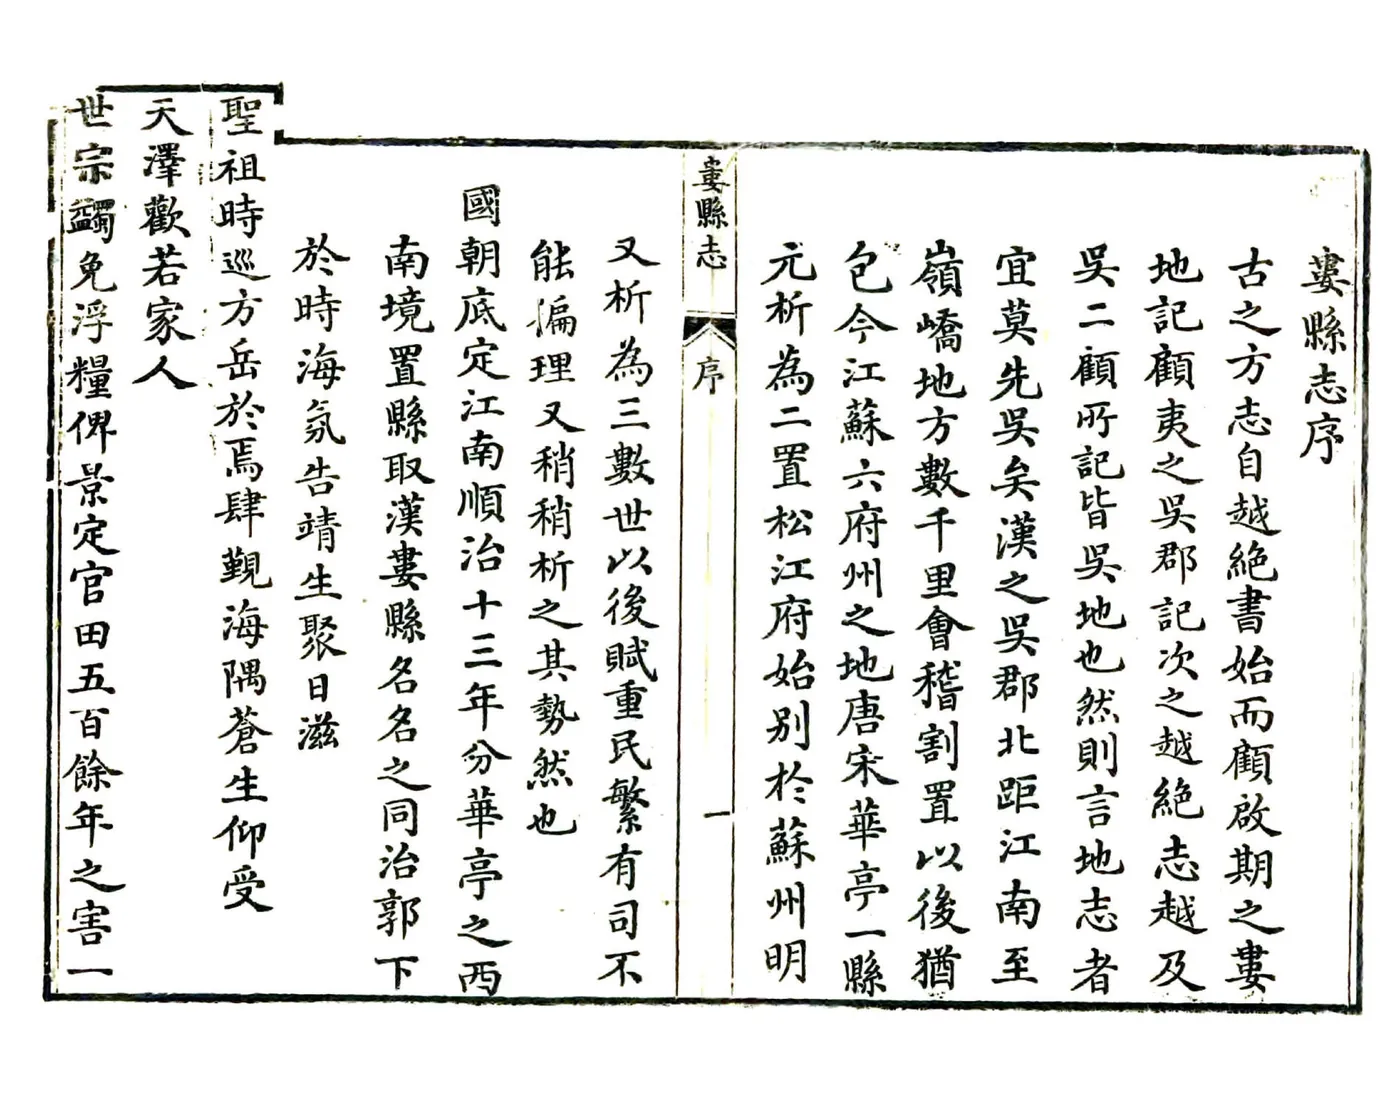 婁縣志序
古之方志自越絶書始而顧啟期之婁
地記顧夷之吳郡記次之越絶志越及
吳二顧所記皆吳地也然則言地志者
宜莫先吳矣漢之吳郡北距江南至
嶺嶠地方數千里會稽割置以後猶
包今江蘇六府州之地唐宋華亭一縣
元析為二置松江府始別於蘇州明
婁縣志
序
一
又析為三數世以後賦重民繁有司不
能徧理又稍稍析之其勢然也
國朝底定江南順治十三年分華亭之西
南境置縣取漢婁縣名名之同治郭下
於時海氛告靖生聚日滋
聖祖時巡方岳於焉肆覲海隅蒼生仰受
天澤歡若家人
世宗蠲免浮糧俾景定官田五百餘年之害一